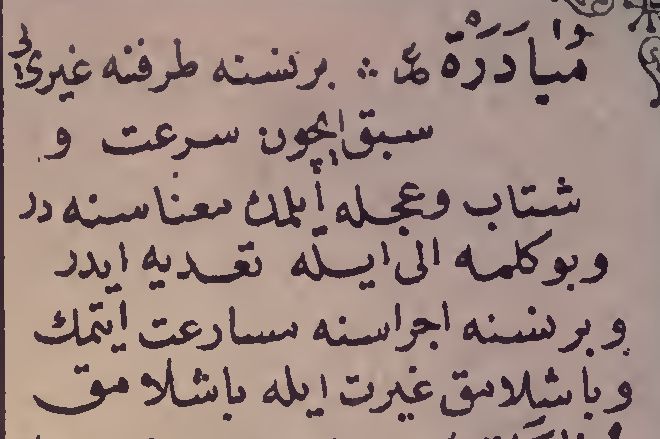 مُبادَرَة ع ∴ بر نسنه طرفنه غیری
سبق ایچون سرعت و
شتاب و عجله ایلمك معناسنه در
و بو كلمه الی ایله تعدیه ایدر
و بر نسنه اجراسنه مسارعت ایتمك
و باشلامق غیرت ایله باشلامق